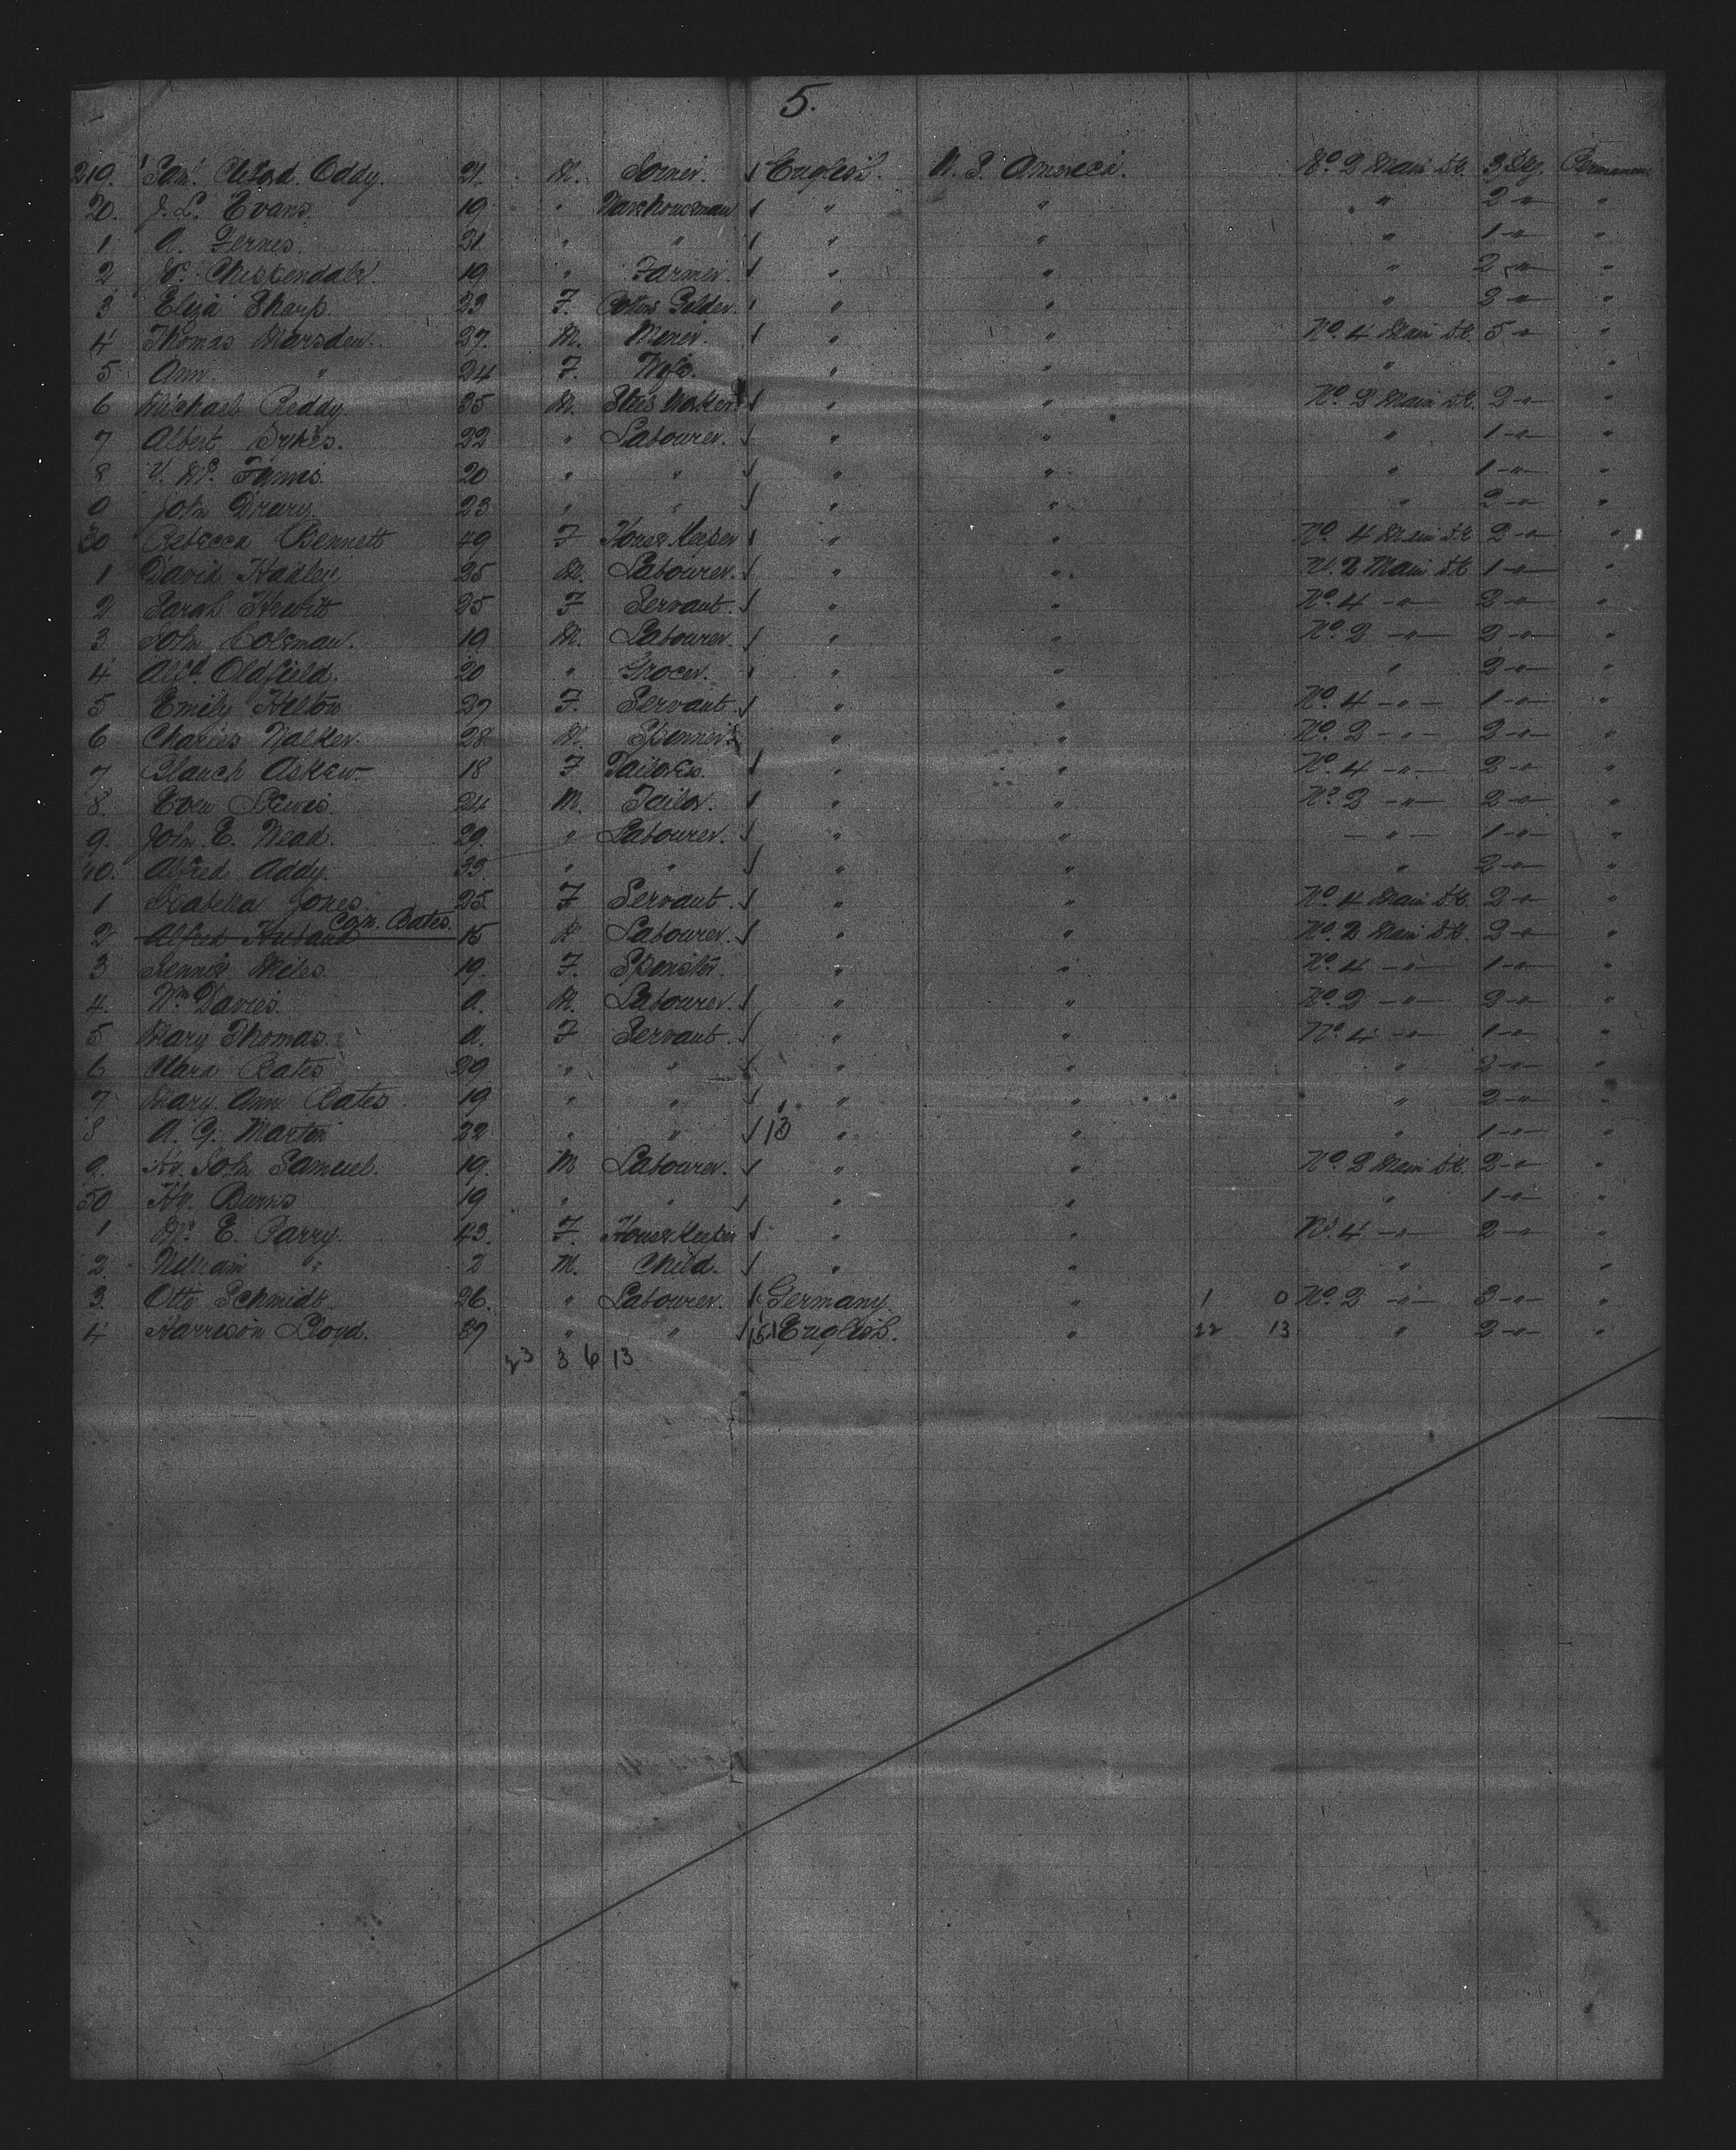 5.
219. Saml Cliffd. Oddy. 21. M. Joiner. English. U. S. America. No. 2 Main Dk. 3 Pkg. Permanen
20. J. L. Evans. 19 " Warehouseman " " " 2 " "
1 A. Fernes. 21 " " " " " 1 " "
2 Chippendale. 19 " Farmer. " " " 2 " "
3 Eliza Sharp. 23 F. Cotton " " " 3 " "
4 Thomas Marsden. 27. M. Miner. " " No. 4 Main Dk. 5 " "
5 Ann " 24 F. Wife. " " " "
6 Michael Reddy. 35 M. " " No. 2 Main Dk. 2 " "
7 Albert Sykes. 22 " Labourer. " " " 1 " "
8 20 " " " " " 1 " "
9 John Drury. 23 " " " " " 2 " "
30 Rebecca Bennett 49 F House Keeper " " No. 4 Main Dk 2 " "
1 David Hadley 25 M. Labourer. " " No. 2 Main Dk 1 " "
2 Sarah Hewitt 25 F Servant. " " No. 4 " 2 " "
3 John Coleman. 19 M. Labourer. " " No. 2 " 2 " "
4 Alfd Oldfield. 20 " Grocer. " " " 2 " "
5 Emily Helton 27 F. Servant. " " No. 4 " 1 " "
6 Charles Walker. 28 M. " " No. 2 " 2 " "
7 Blanch Askew 18 F Tailoress. " " No. 4 " 2 " "
8. Even Lewis 24 M. Tailor. " " No. 2 " 2 " "
9. John E. Wead. 29. " Labourer. " " " 1 " "
40. Alfred Addy. 33. " " " " " 2 " "
1 Isabella Jones. 25. F Servant. " " No. 4 Main Dk. 2 " "
Bates.
2 Alfred Husband 15 M Labourer. " " No. 2 Main Dk. 2 " "
3 Jennie Miles 19. F. Spinster. " " No. 4 " 1 " "
4. Wm Davies. a. M. Labourer. " " No. 2 " 2 " "
5 Mary Thomas. a. F Servant. " " No. 4 " 1 " "
6 Clara Bates 29 " " " " " 2 " "
7 Mary Ann Bates 19 " " " " " 2 " "
8 A. G. Martin 22 " " 13 " " " 1 " "
9. Hy. John Samuel. 19. M Labourer. " " No. 2 Main Dk. 2 " "
50 Hy. Burns 19 " " " " " 1 " "
1 E. Parry. 43. F. House Keeper " " No. 4 " 2 " "
2. William " 2 M. Child. " " " "
3. Otto Schmidt. 26. " Labourer. Germany. " 1 0 No. 2 " 3 " "
4 Harrison Lloyd. 37 " " English. " 22 13 " 2 " "
23 3 6 13